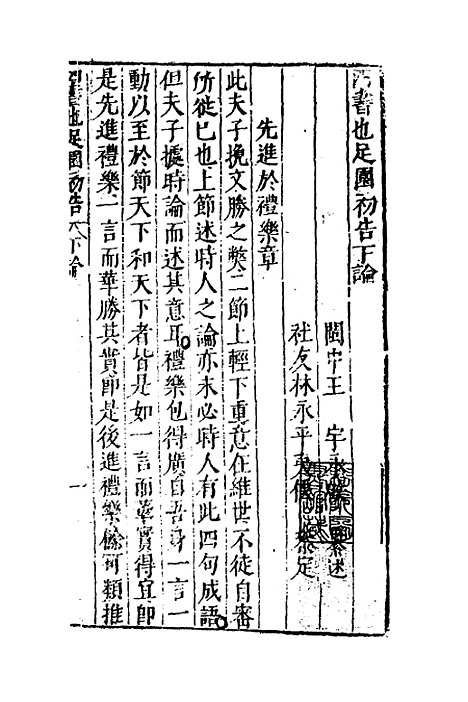 四書也足園初告下論
閩中王 宇
社友林永平 叅定
先進於禮樂章
此夫子挽文勝之獘二節上輕下重意在維世不徒自審
所從已也上節述時人之論亦未必時人有此四句成語
但夫子據時論而述其意耳禮樂包得廣自吾身一言一
動以至於節天下和天下者皆是如一言而華實得宜卽
是先進禮樂一言而華勝其實卽是後進禮樂餘可類推
四書也足園初告 下論 一